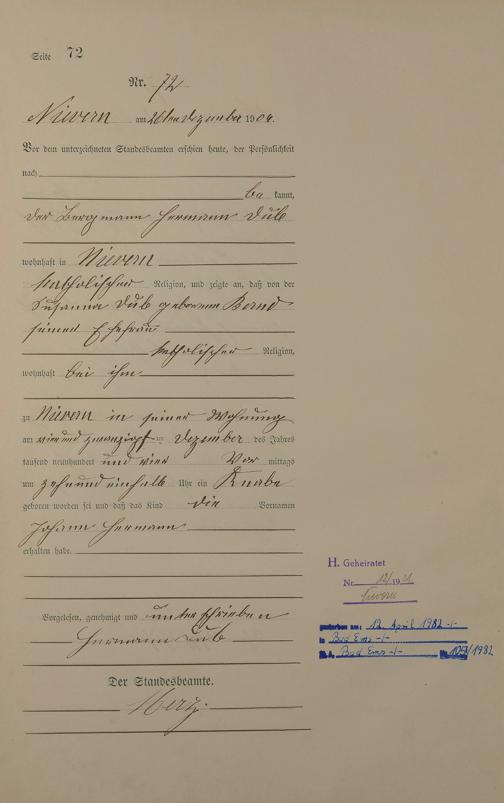 Seite 72
Nr. 72
Nievern am 26ten Dezember 1904.
Vor dem unterzeichneten Standesbeamten erschien heute, der Persönlichkeit
nach
be kannt,
der Bergmann Hermann Düb
wohnhaft in Nievern
katholischer Religion, und zeigte an, daß von der
Susanna Düb geborenen
seiner Ehefrau
katholischer Religion,
wohnhaft bei ihm
zu Nievern in seiner Wohnung
am vier und zwanzigsten Dezember des Jahres
tausend neunhundert und vier Vor mittags
um zehn und einhalb Uhr ein Knabe
geboren worden sei und daß das Kind die Vornamen
Johann Hermann
erhalten habe.
Vorgelesen, genehmigt und unterschrieben
Hermann Düb
Der Standesbeamte.
H. Geheiratet
Nr. 12/19
Nievern
gestorben am: 12. April 1982 -/-
in Bad Ems -/-
St. A. Bad Ems -/- Nr. /1982